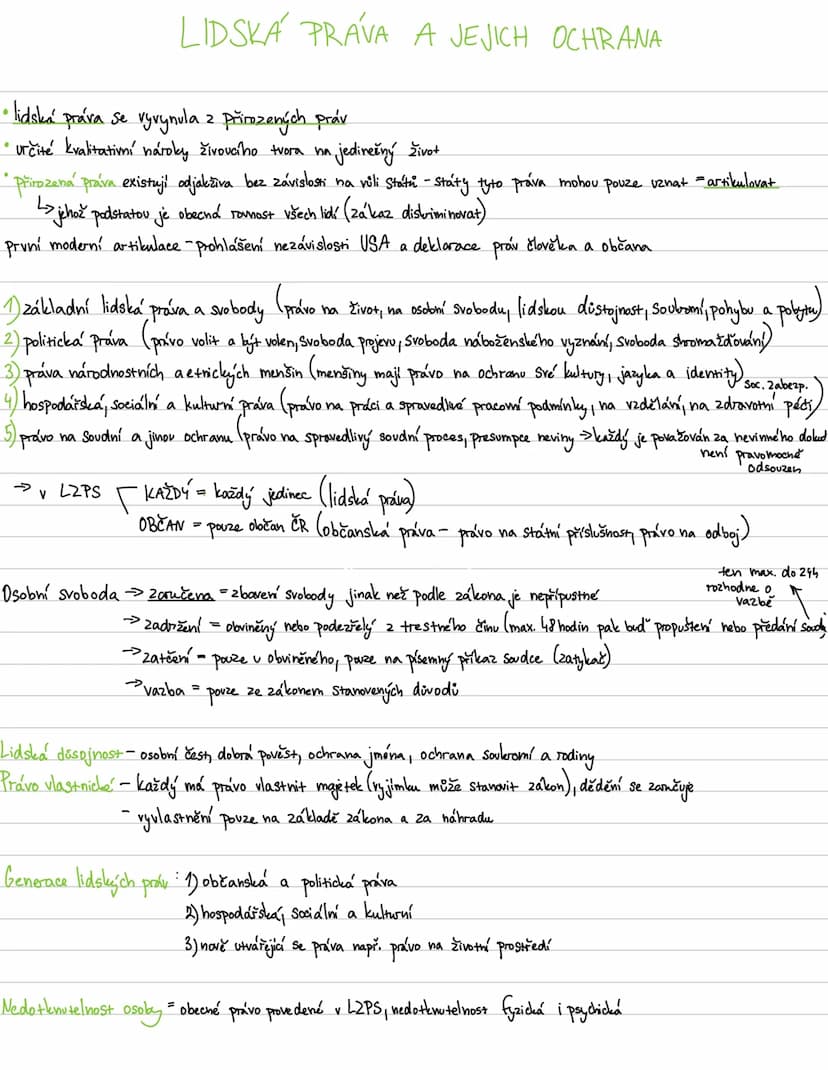 LIDSKÁ PRÁVA A JEJICH OCHRANA
• lidská práva se vyvynula z přirozených práv
• určité kvalitativní nároky živoucího tvora na jedinečný život
• přirozená práva existují odjakživa bez závislosti na vůli státu - státy tyto práva mohou pouze uznat = artikulovat
↳ jehož podstatou je obecná rovnost všech lidí (zákaz diskriminovat)
první moderní artikulace - prohlášení nezávislosti USA a deklorace práv člověka a občana
1) základní lidská práva a svobody (právo na život, na osobní svobodu, lidskou důstojnost, soukromí, pohybu a pobytu)
2) politická práva (právo volit a být volen, svoboda projevu, svoboda náboženského vyznání, svoboda shromažďování)
3) práva národnostních a etnických menšin (menšiny mají právo na ochranu své kultury, jazyka a identity)
soc. zabezp.
4) hospodářská, sociální a kulturní práva (právo na práci a spravedlivé pracovní podmínky, na vzdělání, na zdravotní péči)
5) právo na soudní a jinou ochranu (právo na spravedlivý soudní proces, presumpce neviny → každý je považován za nevinného dokud
není pravomocně
odsouzen
→ v LZPS KAŽDÝ = každý jedinec (lidská práva)
OBČAN = pouze občan ČR (občanská práva - právo na státní příslušnost, právo na odboj)
ten max. do 24h
rozhodne o
vazbě
Osobní svoboda → zaručena = zbavení svobody jinak než podle zákona je nepřípustné
→ zadržení = obviněný nebo podezřelý z trestného činu (max. 48 hodin pak buď propuštění nebo předání soudu
→ zatčení - pouze u obviněného, pouze na písemný příkaz soudce (zatykač)
→ vazba = pouze ze zákonem stanovených důvodů
Lidská důsojnost - osobní čest, dobrá pověst, ochrana jména, ochrana soukromí a rodiny
Právo vlastnické - každý má právo vlastnit majetek (vyjímku může stanovit zákon), dědění se zaručuje
- vyvlastnění pouze na základě zákona a za náhradu
Generace lidských práv: 1) občanská a politická práva
2) hospodářská, sociální a kulturní
3) nově utvářející se práva např. právo na životní prostředí
Nedotknutelnost osoby = obecné právo provedené v LZPS, nedotknutelnost fyzická i psychická